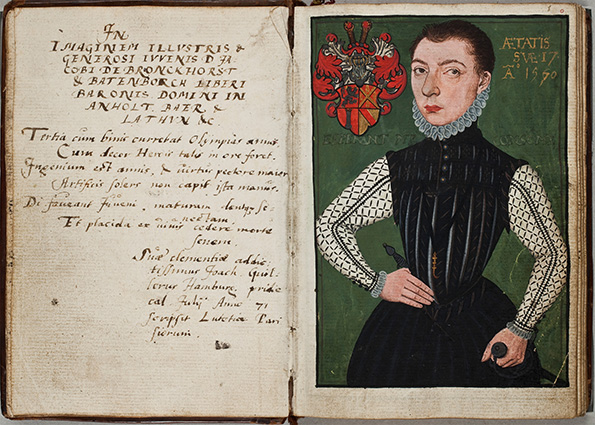 IN
IMAGINEM ILLUSTRIS &
GENEROSI IVVENIS D. JA
COBI DE BRONCKHORST
& BATENBORCH LIBERI
BARONIS DOMINI IN
ANHOLT, BAER &
LATHVN &c.
Tertia cum binis currebat Olympias annis,
Cum decor Herois talis in ore foret.
Ingenium est annis, & virtus pectore maior
Artificis solers non capit ista manus.
Di faveant iuveni, maturam se-
nectam
Et placida vivis cedere morte
senem.
Suæ clementiæ addic
tissimus Joach.
Hamburg. pridie
cal. Julij Anno 71
scripsit Lutetiæ Pari
siorum.
ÆTATIS
SVE 17
Aº 1570